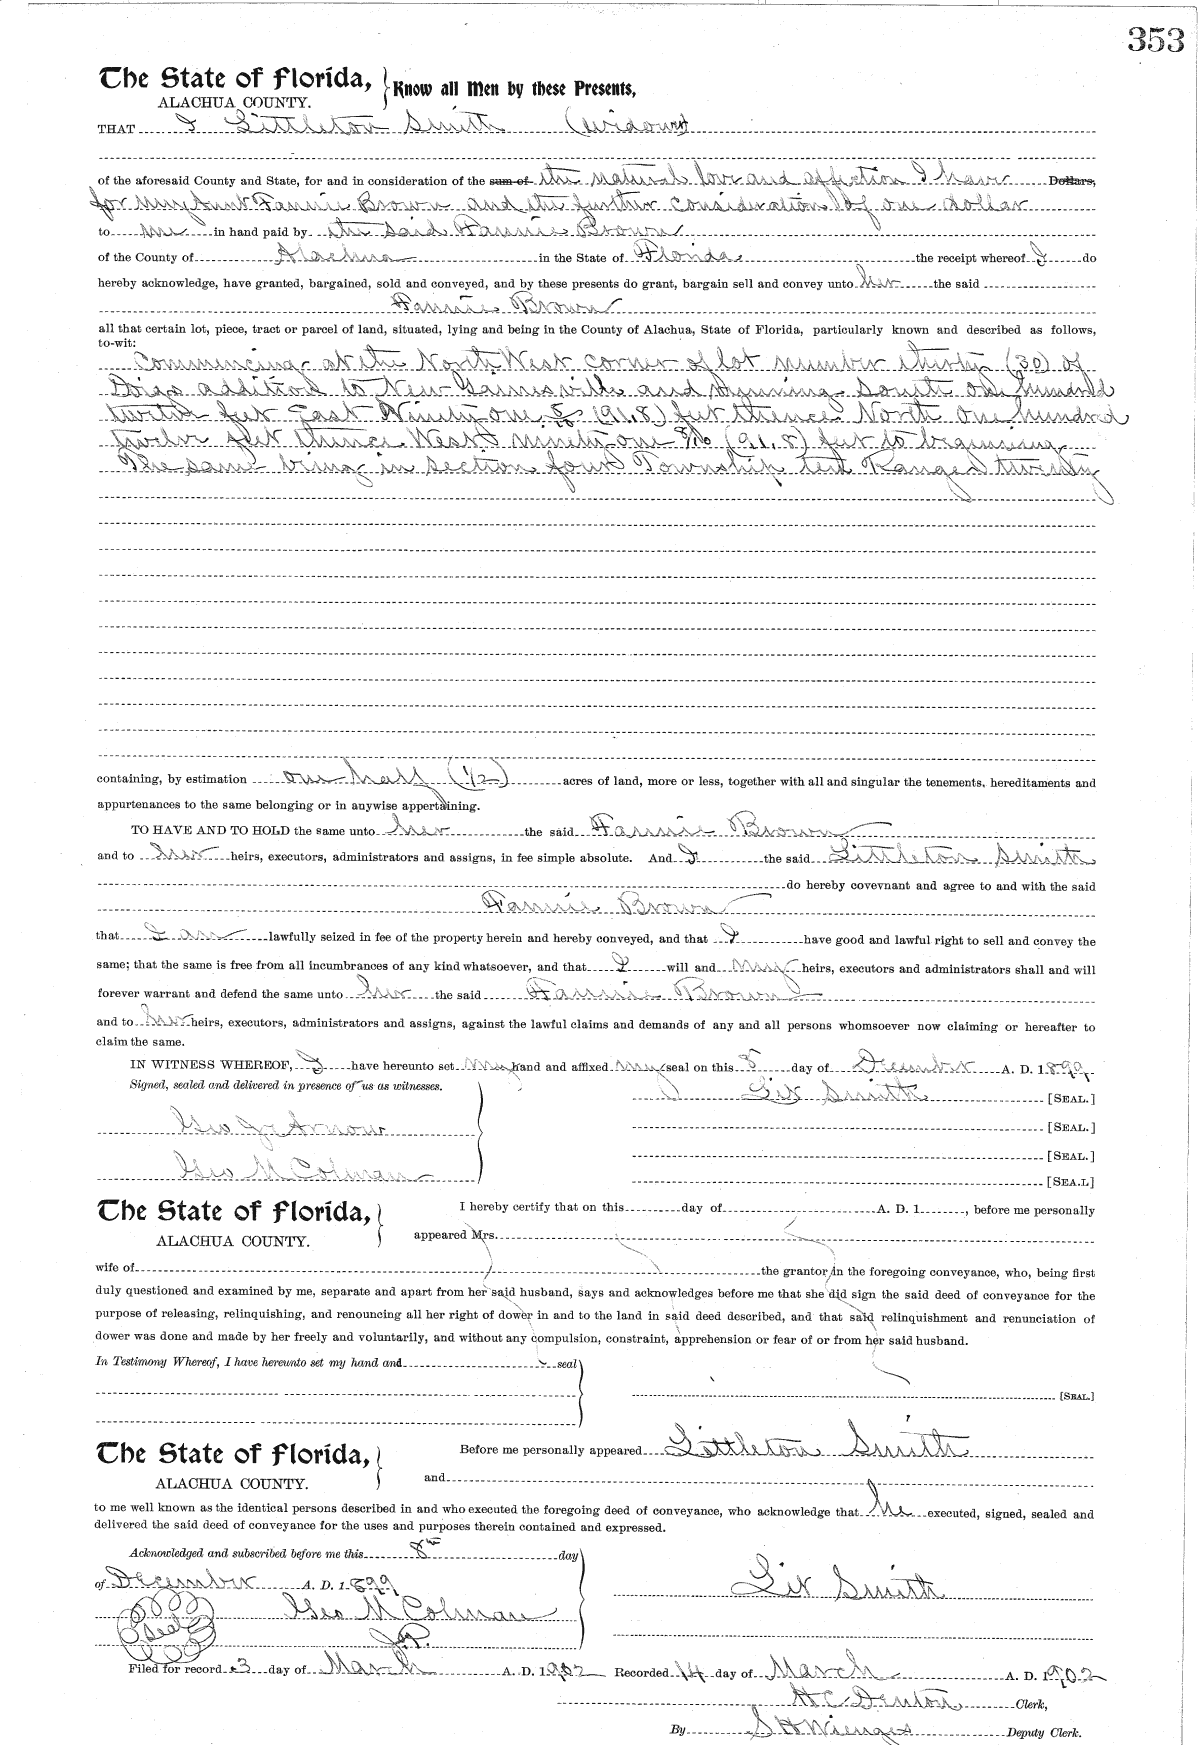 353
The State of Florida, Know all Men by these Presents,
ALACHUA COUNTY.
THAT I Littleton Smith (widower)
of the aforesaid County and State, for and in consideration of the sum of the natural love and affection I have Dollars,
for my Aunt Fannie Brown and the further consideration of one dollar
to me in hand paid by the said Fannie Brown
of the County of Alachua in the State of Florida the receipt whereof I do
hereby acknowledge, have granted, bargained, sold and conveyed, and by these presents do grant, bargain sell and convey unto her the said
Fannie Brown
all that certain lot, piece, tract or parcel of land, situated, lying and being in the County of Alachua, State of Florida, particularly known and described as follows,
to-wit:
Commencing at the North West corner of lot number thirty (30) of
Doigs addition to New Gainesville and running South one hundred
twelve feet East Ninety one 8/10 (91.8) feet thence North One hundred
twelve feet thence West ninety one 8/10 (91.8) feet to beginning
The same being in section four Township ten Range twenty
containing, by estimation one half (1/2) acres of land, more or less, together with all and singular the tenements, hereditaments and
appurtenances to the same belonging or in anywise appertaining.
TO HAVE AND TO HOLD the same unto her the said Fannie Brown
and to her heirs, executors, administrators and assigns, in fee simple absolute. And I the said Littleton Smith
do hereby covevnant and agree to and with the said
Fannie Brown
that I am lawfully seized in fee of the property herein and hereby conveyed, and that I have good and lawful right to sell and convey the
same; that the same is free from all incumbrances of any kind whatsoever, and that I will and my heirs, executors and administrators shall and will
forever warrant and defend the same unto her the said Fannie Brown
and to her heirs, executors, administrators and assigns, against the lawful claims and demands of any and all persons whomsoever now claiming or hereafter to
claim the same.
IN WITNESS WHEREOF, I have hereunto set my hand and affixed my seal on this 8 day of December A. D. 1899
Signed, sealed and delivered in presence of us as witnesses.
Lit Smith [SEAL.]
Geo J Arnow [SEAL.]
[SEAL.]
Geo M Colman [SEA.L]
The State of Florida, I hereby certify that on this day of A. D. 1 , before me personally
ALACHUA COUNTY. appeared Mrs.
wife of the grantor in the foregoing conveyance, who, being first
duly questioned and examined by me, separate and apart from her said husband, says and acknowledges before me that she did sign the said deed of conveyance for the
purpose of releasing, relinquishing, and renouncing all her right of dower in and to the land in said deed described, and that said relinquishment and renunciation of
dower was done and made by her freely and voluntarily, and without any compulsion, constraint, apprehension or fear of or from her said husband.
In Testimony Whereof, I have hereunto set my hand and seal
[SEAL.]
The State of Florida, Before me personally appeared Littleton Smith
ALACHUA COUNTY. and
to me well known as the identical persons described in and who executed the foregoing deed of conveyance, who acknowledge that he executed, signed, sealed and
delivered the said deed of conveyance for the uses and purposes therein contained and expressed.
Acknowledged and subscribed before me this 8th day
of December A. D. 1899
Lit Smith
Seal Geo M Colman
J.P.
Filed for record 3 day of March A. D. 1902 Recorded 14 day of March A. D. 1902
H C Denton Clerk,
By S H Wienges Deputy Clerk.